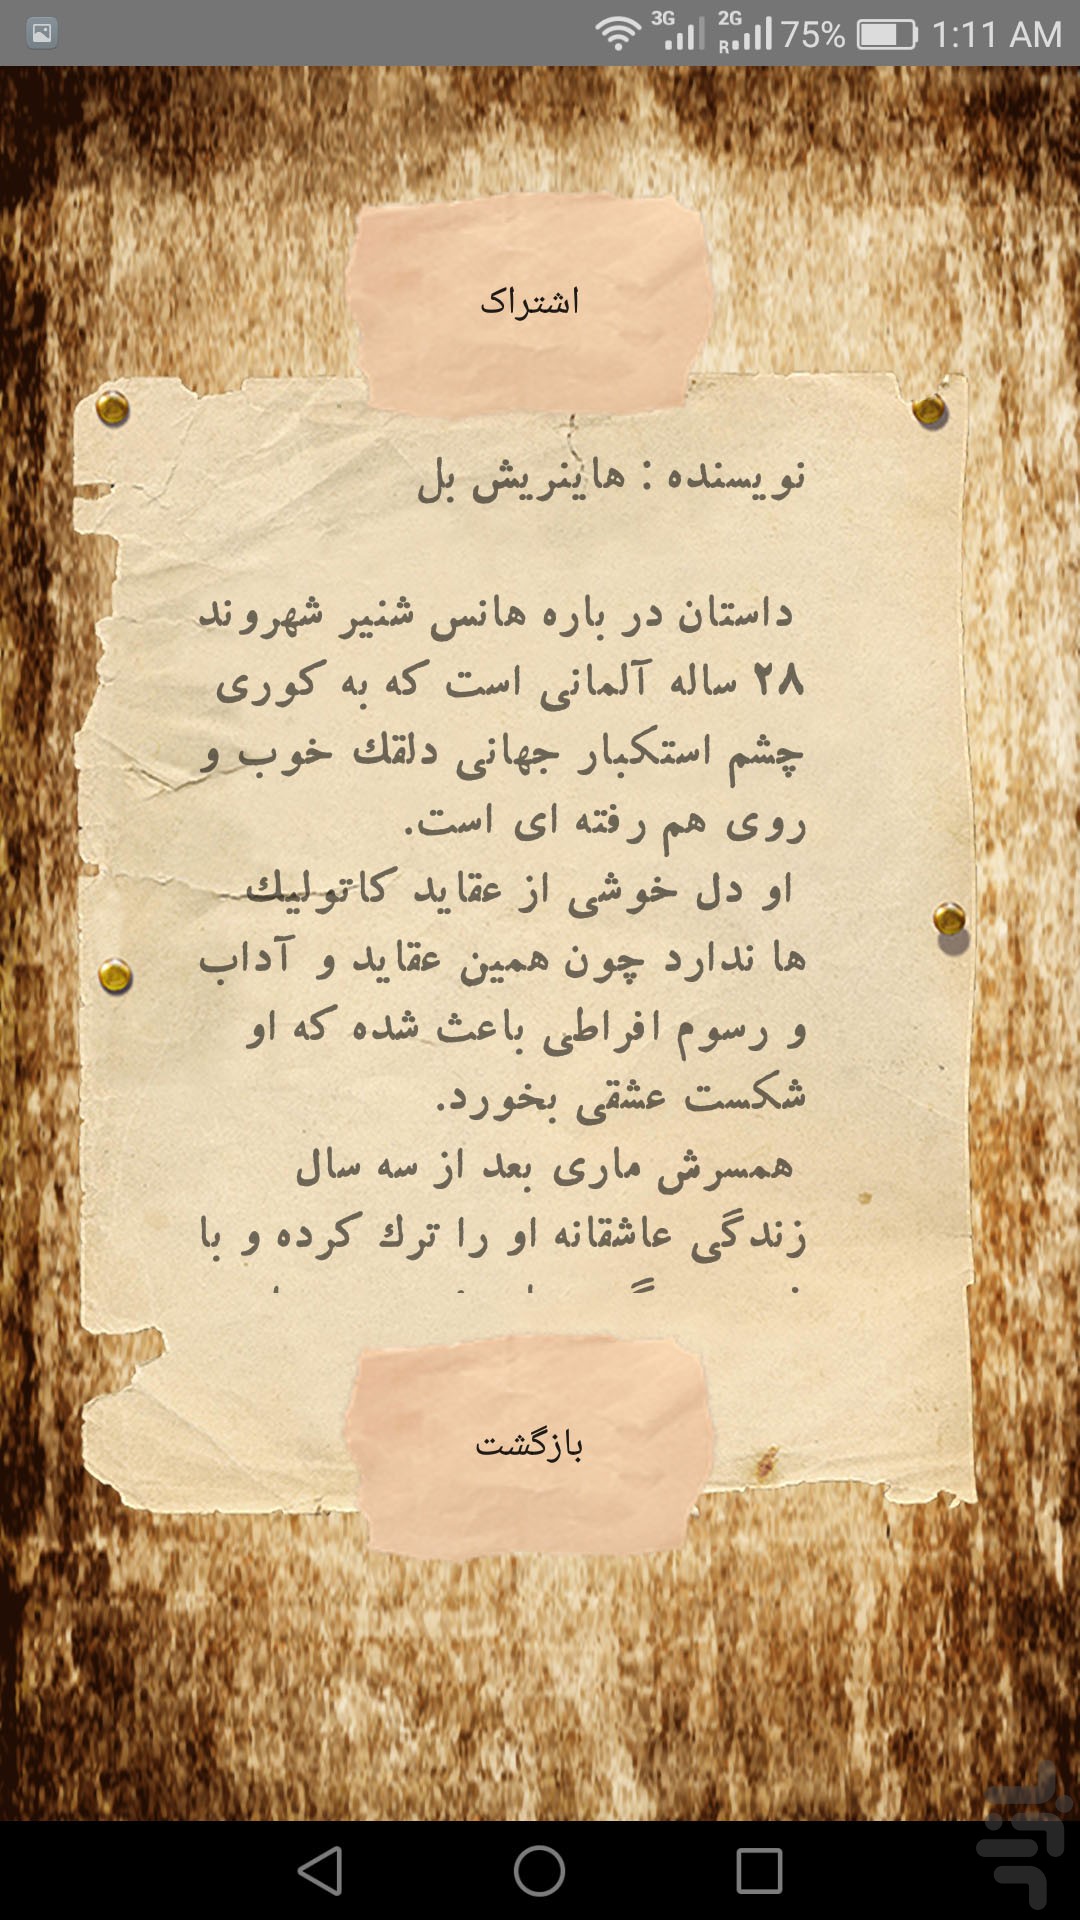 3G 2G R 75% 1:11 AM
اشتراک
نویسنده : هاینریش بل
داستان در باره هانس شنیر شهروند
۲۸ ساله آلمانی است که به کوری
چشم استکبار جهانی دلقك خوب و
روی هم رفته ای است.
او دل خوشی از عقاید کاتولیك
ها ندارد چون همین عقاید و آداب
و رسوم افراطی باعث شده که او
شکست عشقی بخورد.
همسرش ماری بعد از سه سال
زندگی عاشقانه او را ترك کرده و با
بازگشت